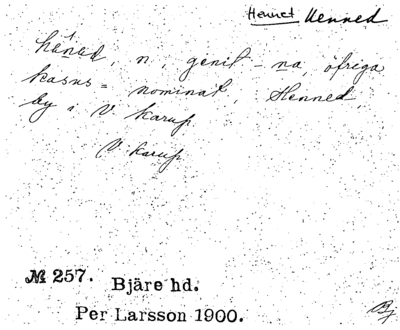 Hennet Henned
hénad, n, genit - na, öfriga
kasus = nominat, Henned,
by i V. Karup.
V. Karup
№ 257. Bjäre hd.
Per Larsson 1900.
Bj